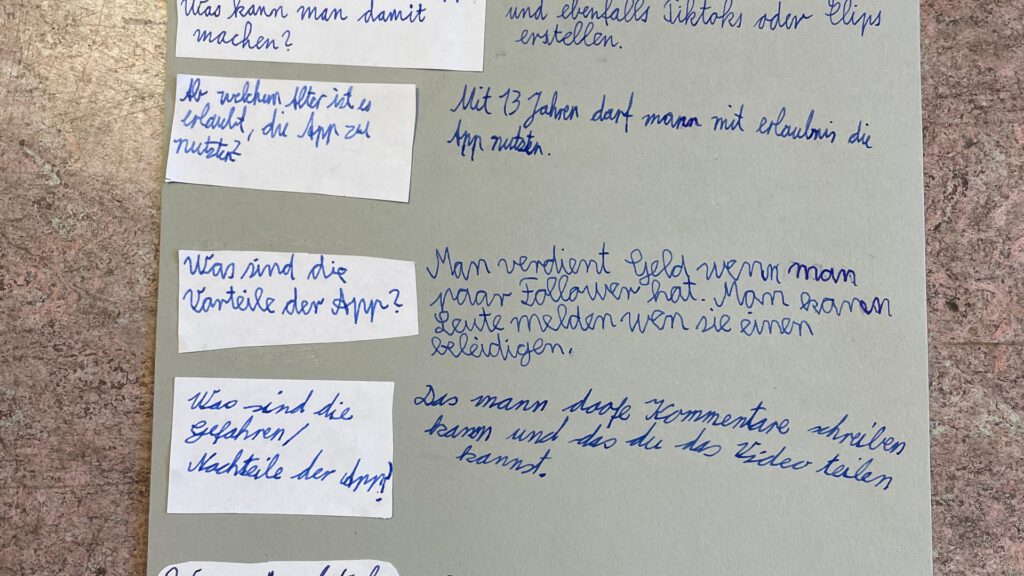 Was kann man damit
machen?
und ebenfalls Tiktoks oder Clips
erstellen.
Ab welchem Alter ist es
erlaubt, die App zu
nutzen?
Mit 13 Jahren darf mann mit erlaubnis die
App nutzen.
Was sind die
Vorteile der App?
Man verdient Geld wenn man
paar Follower hat. Man kann
Leute melden wen sie einen
beleidigen.
Was sind die
Gefahren/
Nachteile der App?
Das mann doofe Kommentare schreiben
kann und das du das Video teilen
kannst.